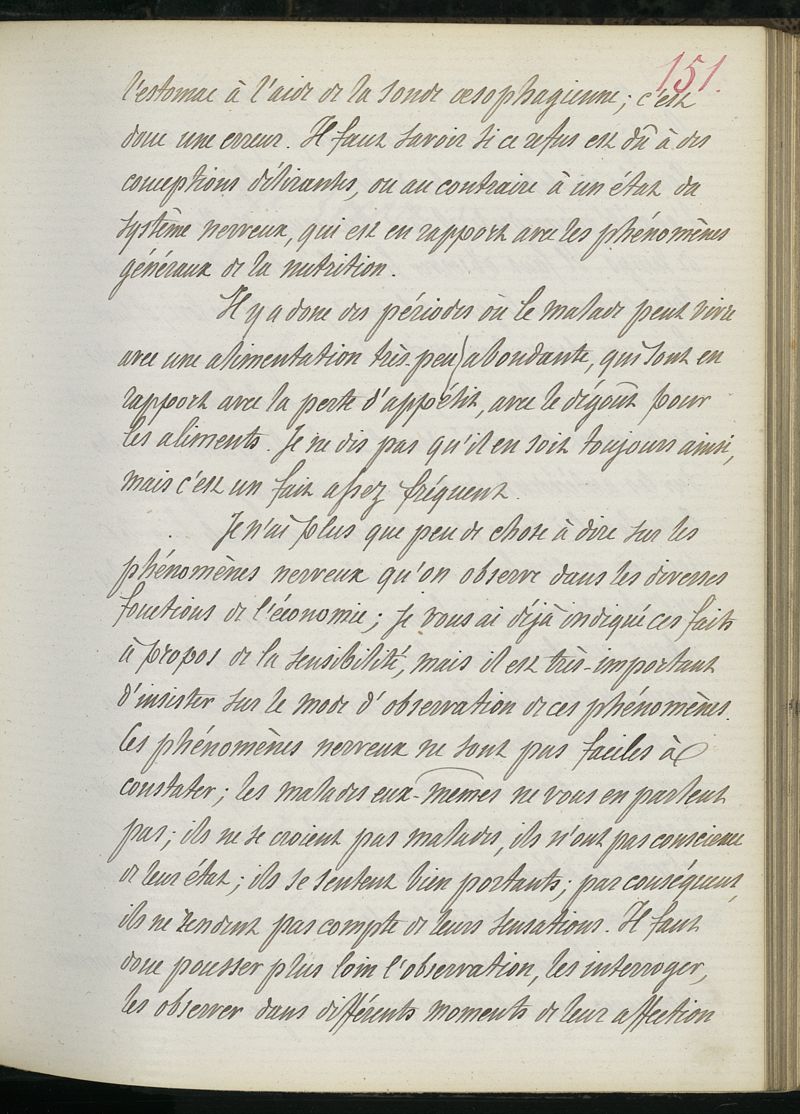 151.
l'estomac à l'aide de la sonde œsophagienne; c'est
donc une erreur. Il faut savoir si ce refus est dû à des
conceptions délirantes, ou au contraire à un état du
système nerveux, qui est en rapport avec les phénomènes
généraux de la nutrition.
Il y a donc des périodes où le malade peut vivre
avec une alimentation très-peu abondante, qui sont en
rapport avec la perte d'appétit, avec le dégoût pour
les aliments. Je ne dis pas qu'il en soit toujours ainsi,
mais c'est un fait assez fréquent.
Je n'ai plus que peu de chose à dire sur les
phénomènes nerveux qu'on observe dans les diverses
fonctions de l'économie; je vous ai déjà indiqué ces faits
à propos de la sensibilité, mais il est très-important
d'insister sur le mode d'observation de ces phénomènes.
Ces phénomènes nerveux ne sont pas faciles à
constater; les malades eux-mêmes ne vous en parlent
pas; ils ne se croient pas malades, ils n'ont pas conscience
de leur état; ils se sentent bien portants; par conséquent,
ils ne rendent pas compte de leurs sensations. Il faut
donc pousser plus loin l'observation, les interroger,
les observer dans différents moments de leur affection